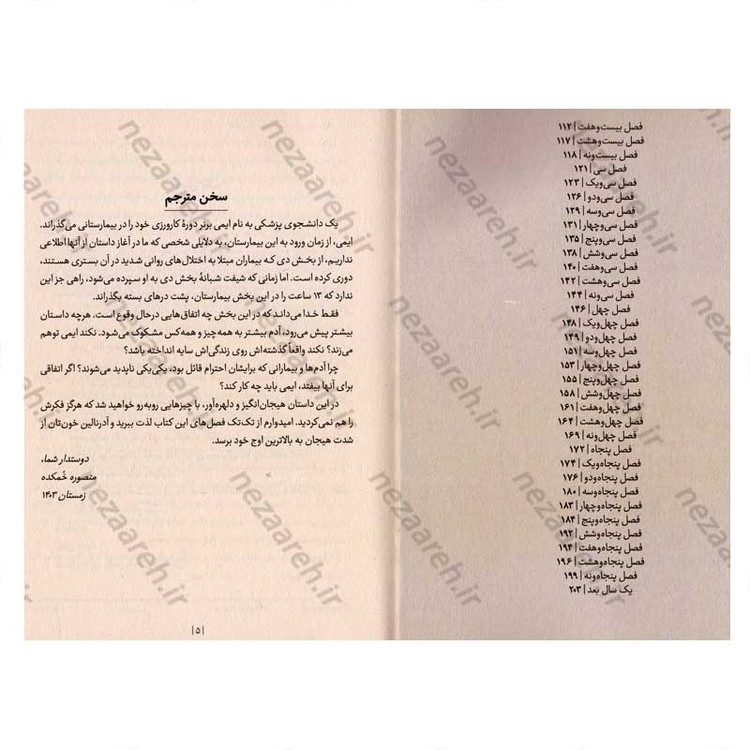 فصل بیست‌وهفت | ۱۱۲
فصل بیست‌وهشت | ۱۱۷
فصل بیست‌ونه | ۱۱۸
فصل سی | ۱۲۱
فصل سی‌ویک | ۱۲۳
فصل سی‌ودو | ۱۲۶
فصل سی‌وسه | ۱۲۹
فصل سی‌وچهار | ۱۳۱
فصل سی‌وپنج | ۱۳۵
فصل سی‌وشش | ۱۳۸
فصل سی‌وهفت | ۱۴۰
فصل سی‌وهشت | ۱۴۲
فصل سی‌ونه | ۱۴۴
فصل چهل | ۱۴۶
فصل چهل‌ویک | ۱۴۸
فصل چهل‌ودو | ۱۴۹
فصل چهل‌وسه | ۱۵۱
فصل چهل‌وچهار | ۱۵۳
فصل چهل‌وپنج | ۱۵۵
فصل چهل‌وشش | ۱۵۸
فصل چهل‌وهفت | ۱۶۱
فصل چهل‌وهشت | ۱۶۴
فصل چهل‌ونه | ۱۶۹
فصل پنجاه | ۱۷۲
فصل پنجاه‌ویک | ۱۷۴
فصل پنجاه‌ودو | ۱۷۶
فصل پنجاه‌وسه | ۱۸۰
فصل پنجاه‌وچهار | ۱۸۳
فصل پنجاه‌وپنج | ۱۸۴
فصل پنجاه‌وشش | ۱۹۲
فصل پنجاه‌وهفت | ۱۹۴
فصل پنجاه‌وهشت | ۱۹۶
فصل پنجاه‌ونه | ۱۹۹
یک سال بعد | ۲۰۳
سخن مترجم
یک دانشجوی پزشکی به نام ایمی برنر دورهٔ کارورزی خود را در بیمارستانی می‌گذراند.
ایمی، از زمان ورود به این بیمارستان، به دلایلی شخصی که ما در آغاز داستان از آنها اطلاعی
نداریم، از بخش دی که بیماران مبتلا به اختلال‌های روانی شدید در آن بستری هستند،
دوری کرده است. اما زمانی که شیفت شبانهٔ بخش دی به او سپرده می‌شود، راهی جز این
ندارد که ۱۳ ساعت را در این بخش بیمارستان، پشت درهای بسته بگذراند.
فقط خدا می‌داند که در این بخش چه اتفاق‌هایی درحال وقوع است. هرچه داستان
بیشتر پیش می‌رود، آدم بیشتر به همه‌چیز و همه‌کس مشکوک می‌شود. نکند ایمی توهم
می‌زند؟ نکند واقعاً گذشته‌اش روی زندگی‌اش سایه انداخته باشد؟
چرا آدم‌ها و بیمارانی که برایشان احترام قائل بود، یکی‌یکی ناپدید می‌شوند؟ اگر اتفاقی
برای آنها بیفتد، ایمی باید چه کار کند؟
در این داستان هیجان‌انگیز و دلهره‌آور، با چیزهایی روبه‌رو خواهید شد که هرگز فکرش
را هم نمی‌کردید. امیدوارم از تک‌تک فصل‌های این کتاب لذت ببرید و آدرنالین خون‌تان از
شدت هیجان به بالاترین اوج خود برسد.
دوستدار شما،
منصوره خُمکده
زمستان ۱۴۰۳
| ۵ |
nezaareh.ir
nezaareh.ir
nezaareh.ir
nezaareh.ir
nezaareh.ir
nezaareh.ir
nezaareh.ir
nezaareh.ir
nezaareh.ir
nezaareh.ir
nezaareh.ir
nezaareh.ir